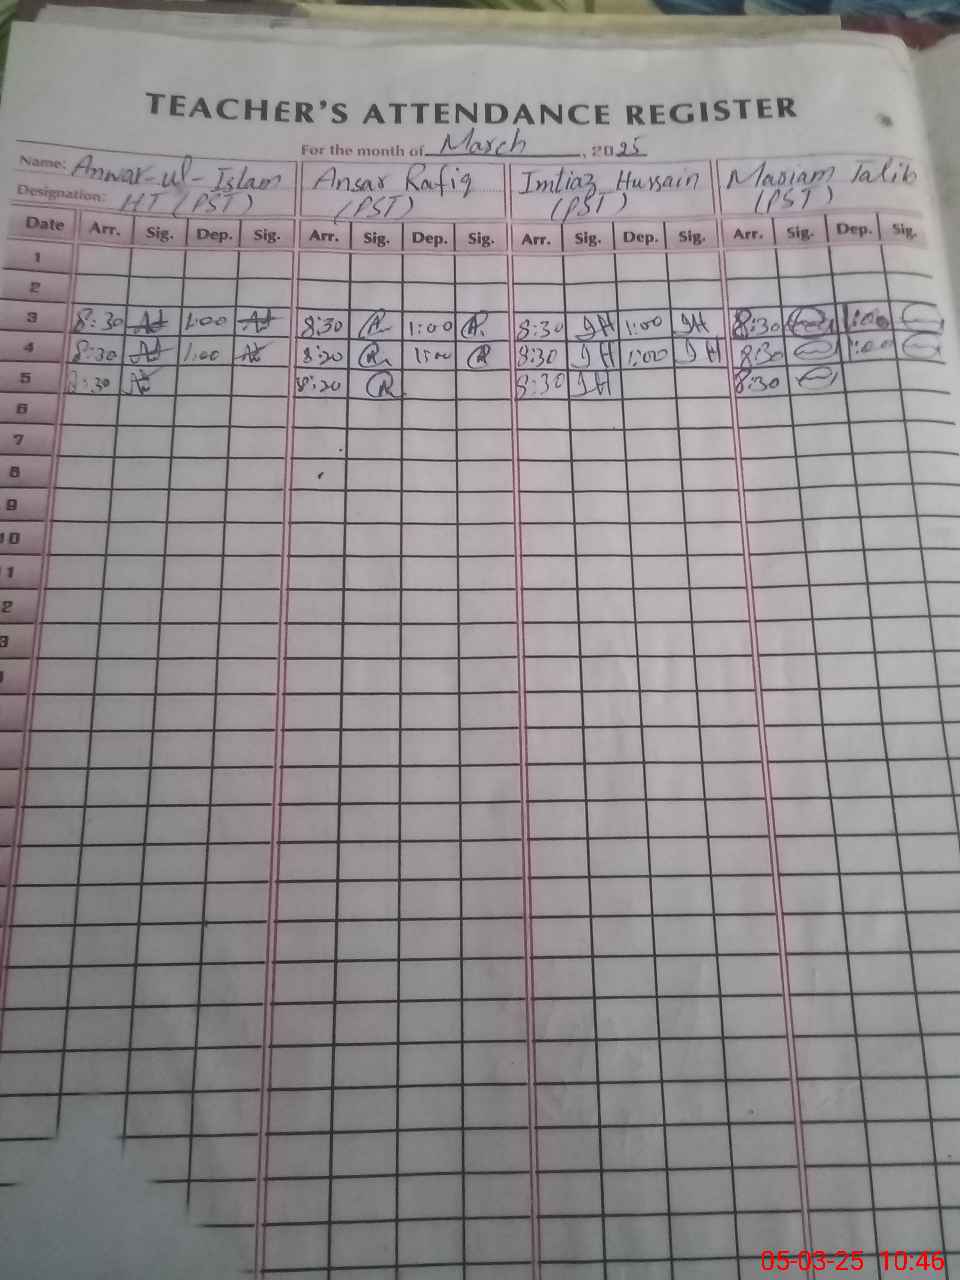 TEACHER'S ATTENDANCE REGISTER
For the month of March, 2025
Name: Anwar-ul-Islam Ansar Rafiq Imtiaz Hussain Mariam Talib
Designation: HT (PST) (PST) (PST) (PST)
Date Arr. Sig. Dep. Sig. Arr. Sig. Dep. Sig. Arr. Sig. Dep. Sig. Arr. Sig. Dep. Sig.
1
2
3 8:30 1:00 8:30 1:00 8:30 IH 1:00 IH 8:30 1:00
4 8:30 1:00 8:30 1:00 8:30 IH 1:00 IH 8:30 1:00
5 8:30 8:30 8:30 IH 8:30
6
7
8
9
10
11
2
3
05-03-25 10:46